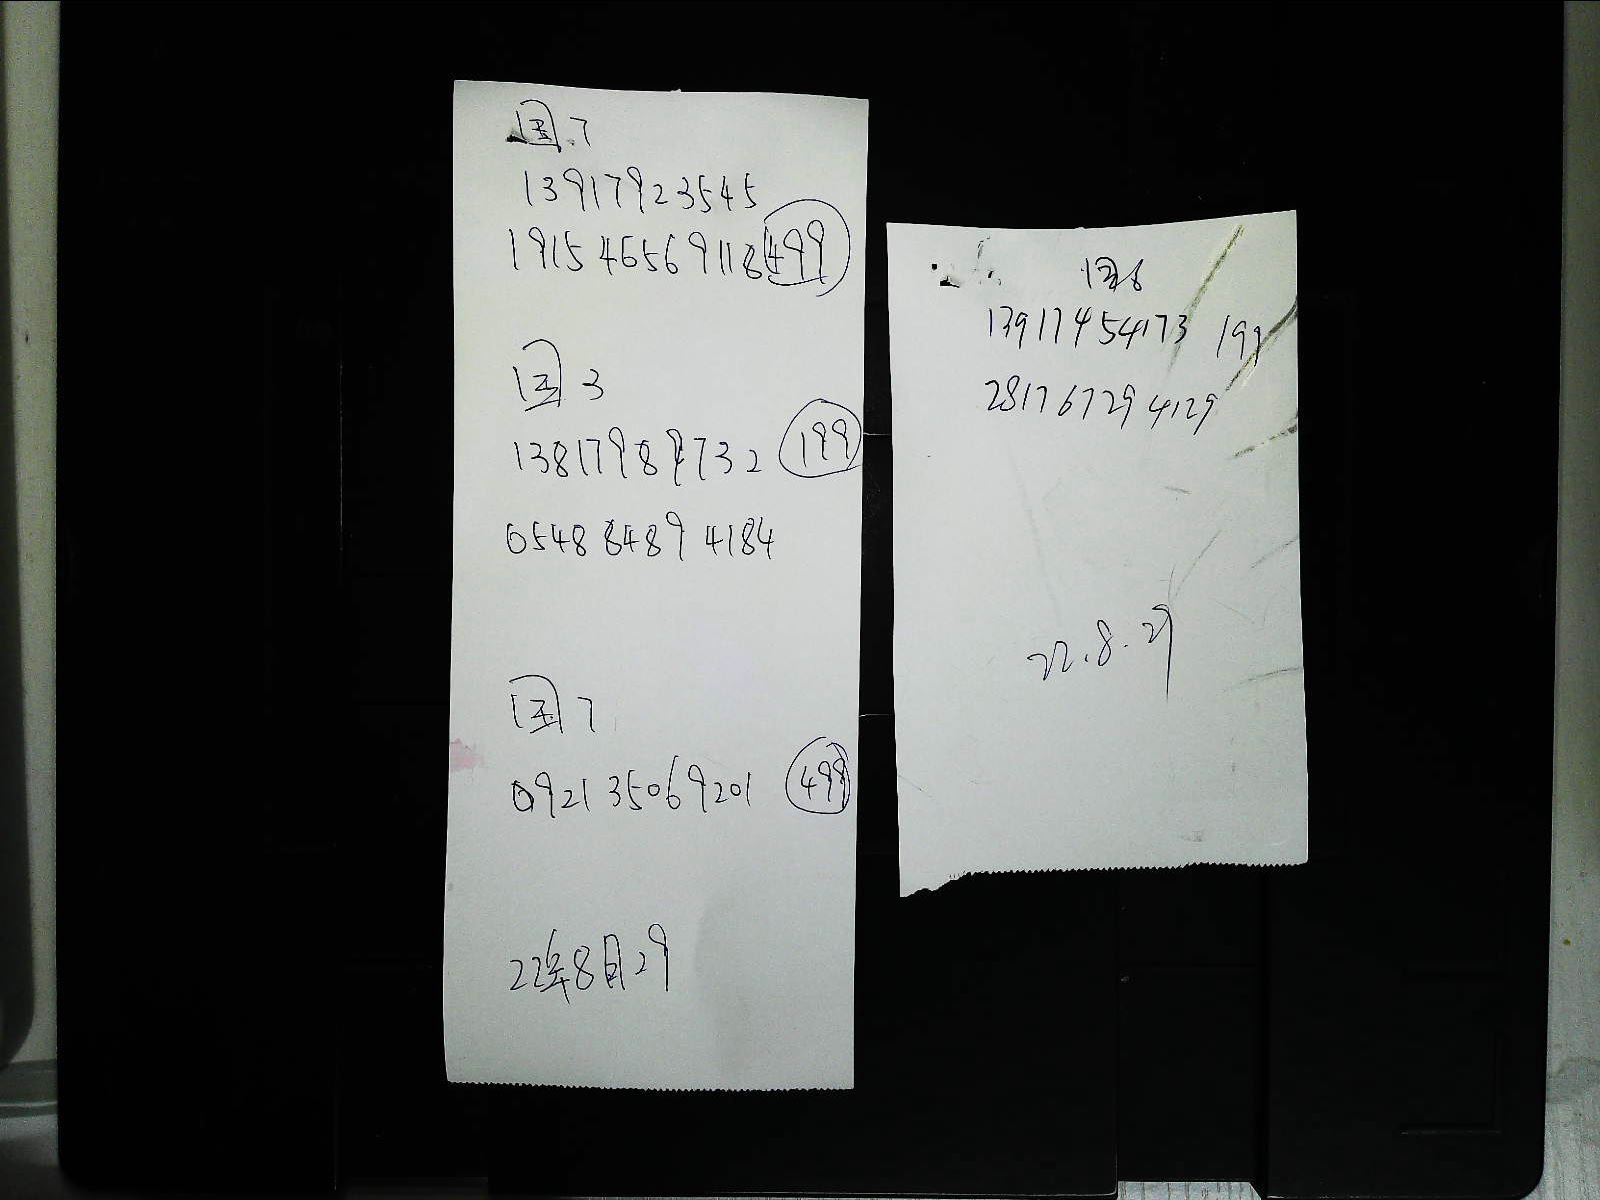 国7
13917923545
1915 46569118 499
国3
13817989732 199
0548 8489 4184
国7
0921 35069201 499
22年8月29
国6
13917454173 199
2817 6729 4129
22.8.29